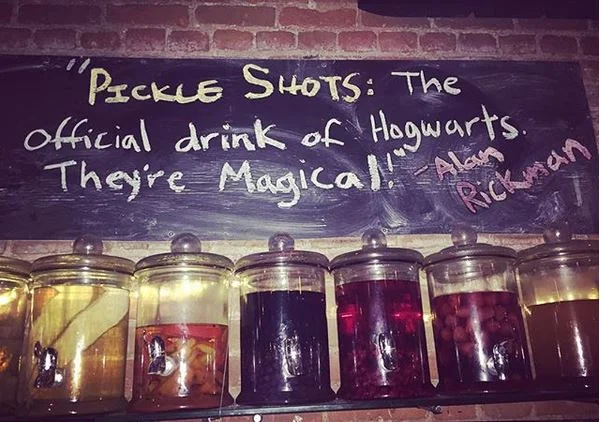 "PICKLE SHOTS: The
official drink of Hogwarts.
They're Magical!"
-Alan
Rickman